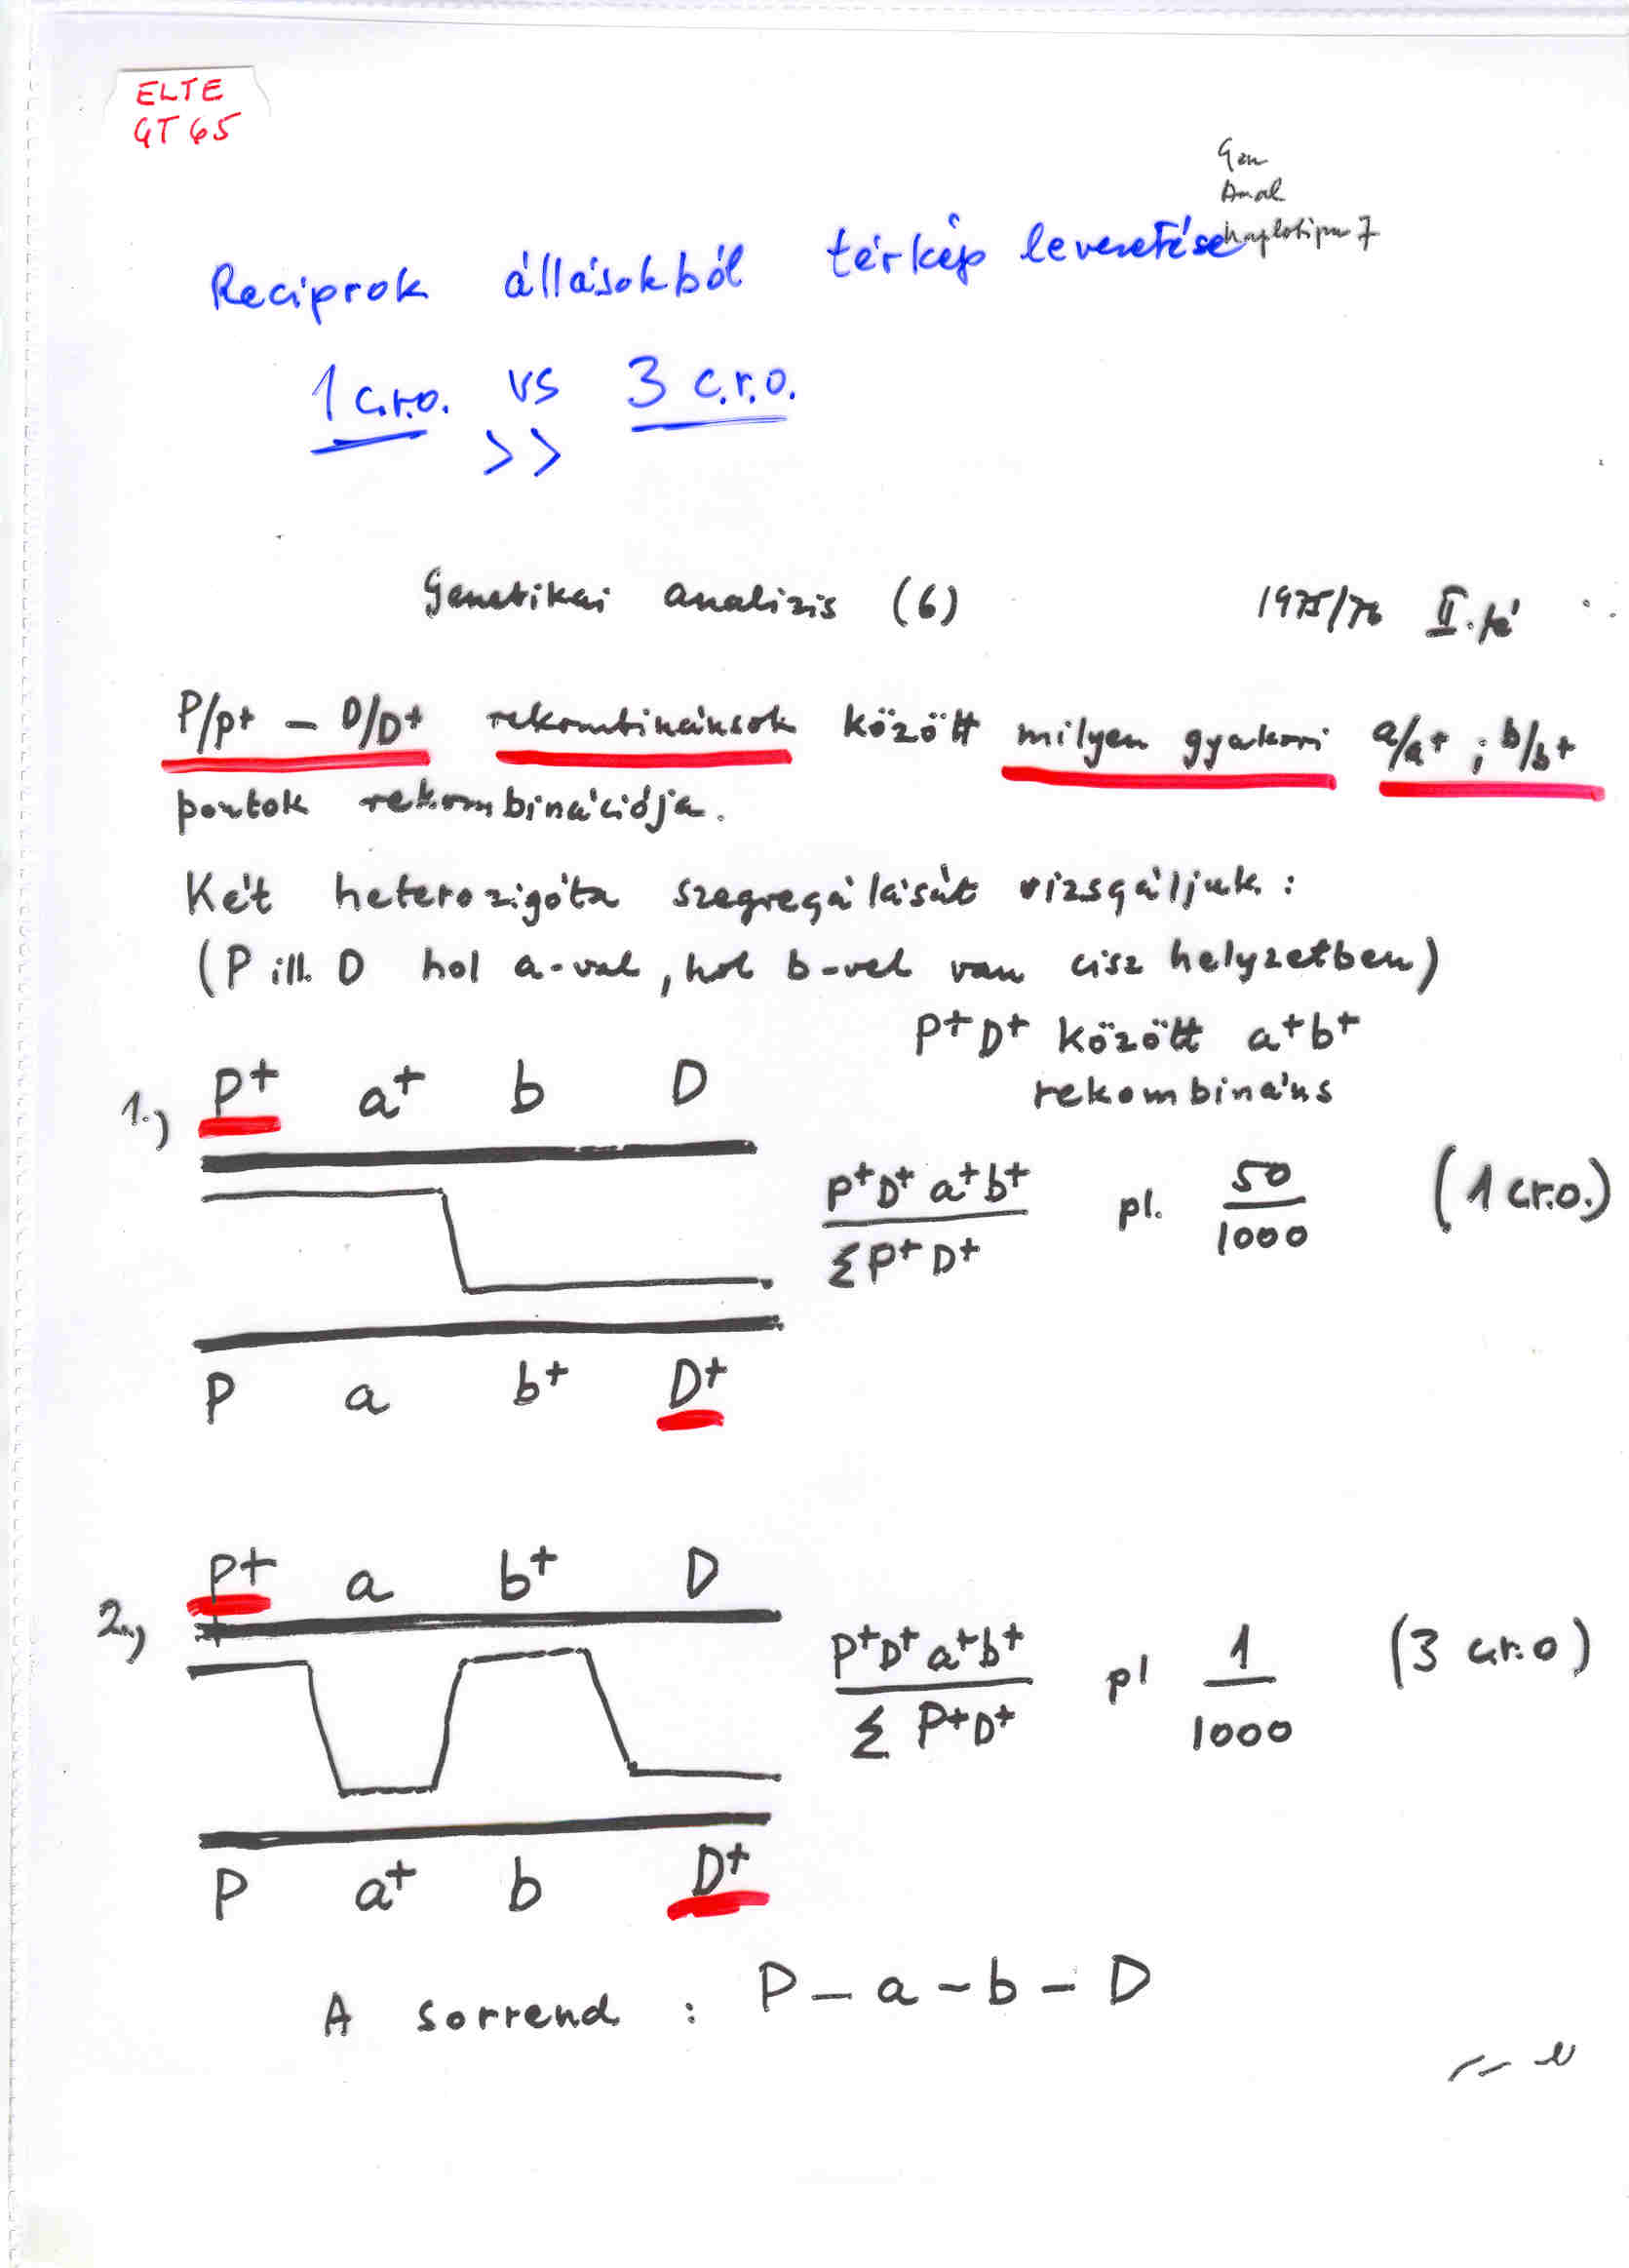 ELTE
GT 65
Gen
Anal
haplotipus 7
Reciprok állásokból térkép levezetése
1 c.r.o. vs 3 c.r.o.
>>
Genetikai analizis (6) 1975/76 II. fé
P/p+ – D/D+ rekombinánsok között milyen gyakori a/a+ ; b/b+
pontok rekombinációja.
Két heterozigóta szegregálását vizsgáljuk :
(P ill. D hol a-val, hol b-vel van cisz helyzetben)
P+ D+ között a+b+
rekombináns
1.) P+ a+ b D
P+D+ a+b+ / Σ P+ D+ pl. 50 / 1000 (1 cr.o.)
P a b+ D+
2.) P+ a b+ D
P+D+ a+b+ / Σ P+D+ pl 1 / 1000 (3 c.r.o)
P a+ b D+
A sorrend : P – a – b – D